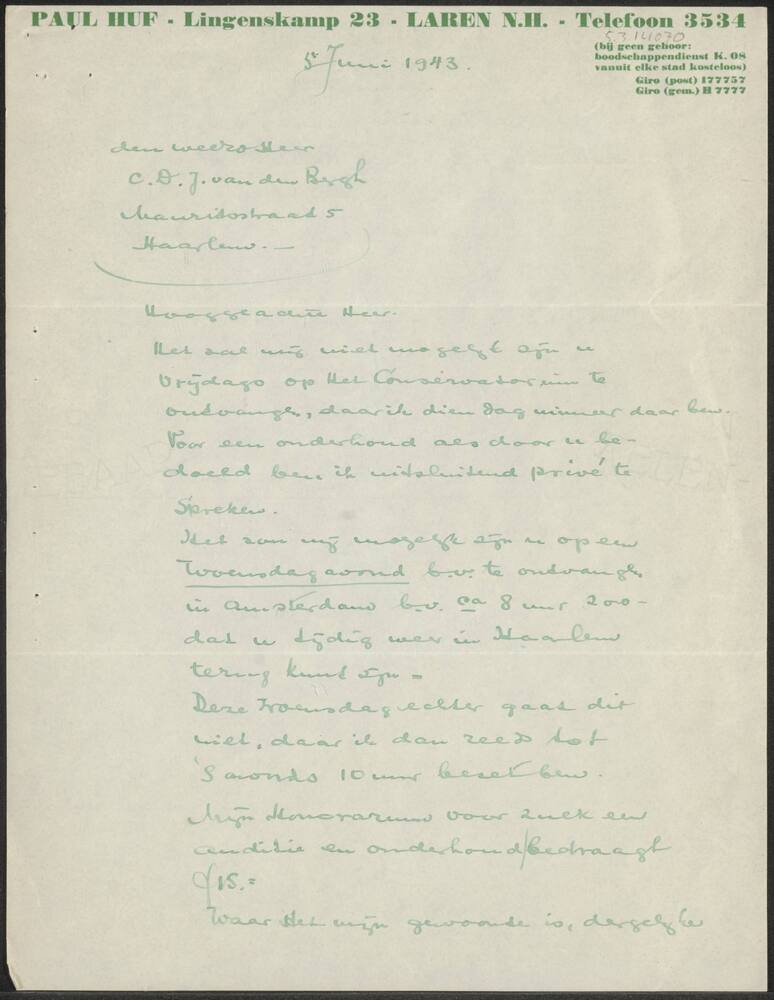 PAUL HUF - Lingenskamp 23 - LAREN N.H. - Telefoon 3534
5.3.14070
(bij geen gehoor:
boodschappendienst K. 08
vanuit elke stad kosteloos)
Giro (post) 177757
Giro (gem.) H 7777
5 Juni 1943.
den weledHeer
C. D. J. van den Bergh
Mauritsstraat 5
Haarlem. —
Hooggeachte Heer.
Het zal mij niet mogelijk zijn u
Vrijdags op Het Conservatorium te
ontvangen, daar ik dien dag nimmer daar ben.
Voor een onderhoud als door u be-
doeld ben ik uitsluitend privé te
Spreken.
Het zou mij mogelijk zijn u op een
Woensdagavond b.v. te ontvangen
in Amsterdam b.v. ca 8 uur zoo-
dat u tijdig weer in Haarlem
terug kunt zijn =
Deze Woensdag echter gaat dit
niet, daar ik dan reeds tot
's avonds 10 uur bezet ben.
Mijn Honorarium voor zulk een
auditie en onderhoud bedraagt
ƒ 15.=
Waar Het mijn gewoonte is, dergelijke